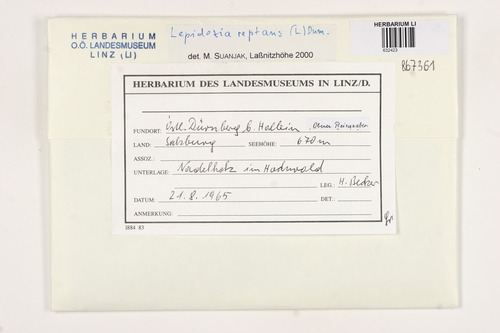 HERBARIUM
O.Ö. LANDESMUSEUM
LINZ (LI)
Lepidozia reptans (L.) Dum.
det. M. SUANJAK, Laßnitzhöhe 2000
HERBARIUM LI
632423
867361
HERBARIUM DES LANDESMUSEUMS IN LINZ/D.
FUNDORT: Östl. Dürrnberg b. Hallein,
LAND: Salzburg SEEHÖHE: 670 m
ASSOZ.:
UNTERLAGE: Nadelholz im Hochwald
LEG.: H. Becker
DATUM: 21. 8. 1965 DET.:
ANMERKUNG:
I884 83